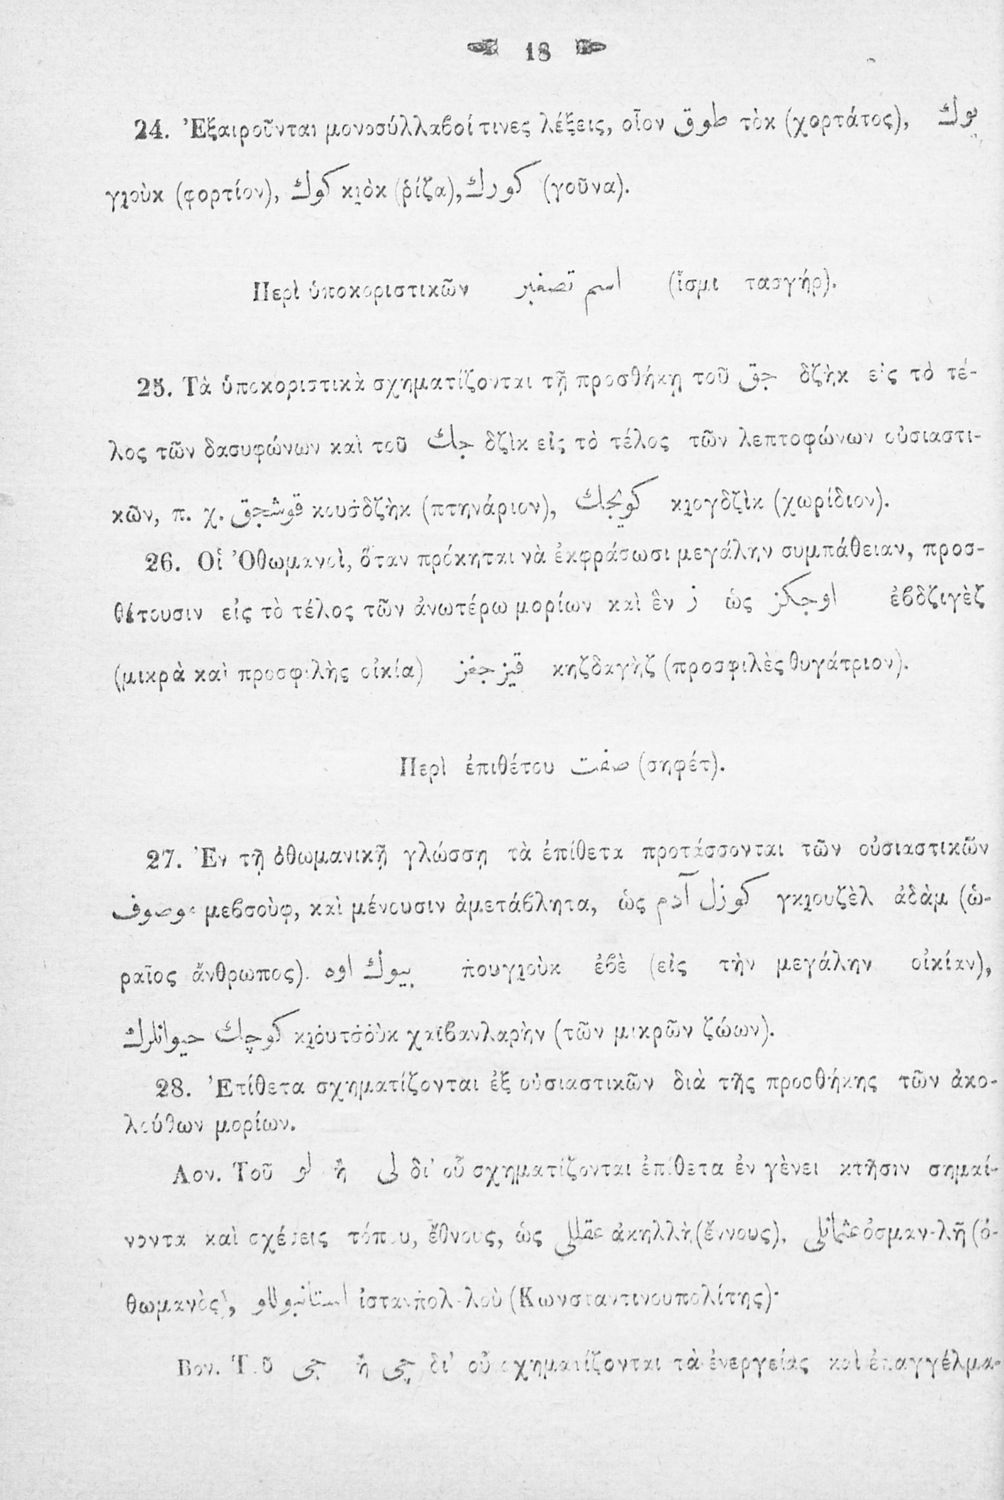 18
24. Ἐξαιροῦνται μονοσύλλαβοί τινες λέξεις, οἷον طوق τὸκ (χορτάτος), يوك
γι̯οὺκ (φορτίον), كوك κι̯ὸκ (ῥίζα), كورك (γοῦνα).
Περὶ ὑποκοριστικῶν اسم تصغير (ἴσμι τασγήρ).
25. Τὰ ὑποκοριστικὰ σχηματίζονται τῇ προσθήκῃ τοῦ جق δζὴκ εἰς τὸ τέ-
λος τῶν δασυφώνων καὶ τοῦ جك δζὶκ εἰς τὸ τέλος τῶν λεπτοφώνων οὐσιαστι-
κῶν, π. χ. قوشجق κουσδζὴκ (πτηνάριον), كويجك κι̯ογδζὶκ (χωρίδιον).
26. Οἱ Ὀθωμανοὶ, ὅταν πρόκηται νὰ ἐκφράσωσι μεγάλην συμπάθειαν, προσ-
θέτουσιν εἰς τὸ τέλος τῶν ἀνωτέρω μορίων καὶ ἓν ز ὡς اوجكز ἐβδζιγὲζ
(μικρὰ καὶ προσφιλὴς οἰκία) قيزجغز κηζδαγὴζ (προσφιλὲς θυγάτριον).
Περὶ ἐπιθέτου صفت (σηφέτ).
27. Ἐν τῇ ὀθωμανικῇ γλώσσῃ τὰ ἐπίθετα προτάσσονται τῶν οὐσιαστικῶν
موصوف μεβσοὺφ, καὶ μένουσιν ἀμετάβλητα, ὡς كوزل آدم γκι̯ουζὲλ ἀδὰμ (ὡ-
ραῖος ἄνθρωπος). بيوك اوه πουγι̯οὺκ ἐβὲ (εἰς τὴν μεγάλην οἰκίαν),
كوچك حيوانلرك κι̯ουτσοὺκ χαϊβανλαρὴν (τῶν μικρῶν ζώων).
28. Ἐπίθετα σχηματίζονται ἐξ οὐσιαστικῶν διὰ τῆς προσθήκης τῶν ἀκο-
λούθων μορίων.
Αον. Τοῦ لو ἢ لى δι' οὗ σχηματίζονται ἐπίθετα ἐν γένει κτῆσιν σημαί-
νοντα καὶ σχέσεις τόπου, ἔθνους, ὡς عقللى ἀκηλλὴ (ἔννους), عثمانلى ὀσμαν-λῆ (ὀ-
θωμανὸς), استانبوللو ἰστανπολ-λοὺ (Κωνσταντινουπολίτης)·
Βον. Τοῦ جى ἢ چى δι' οὗ σχηματίζονται τὰ ἐνεργείας καὶ ἐπαγγέλμα-